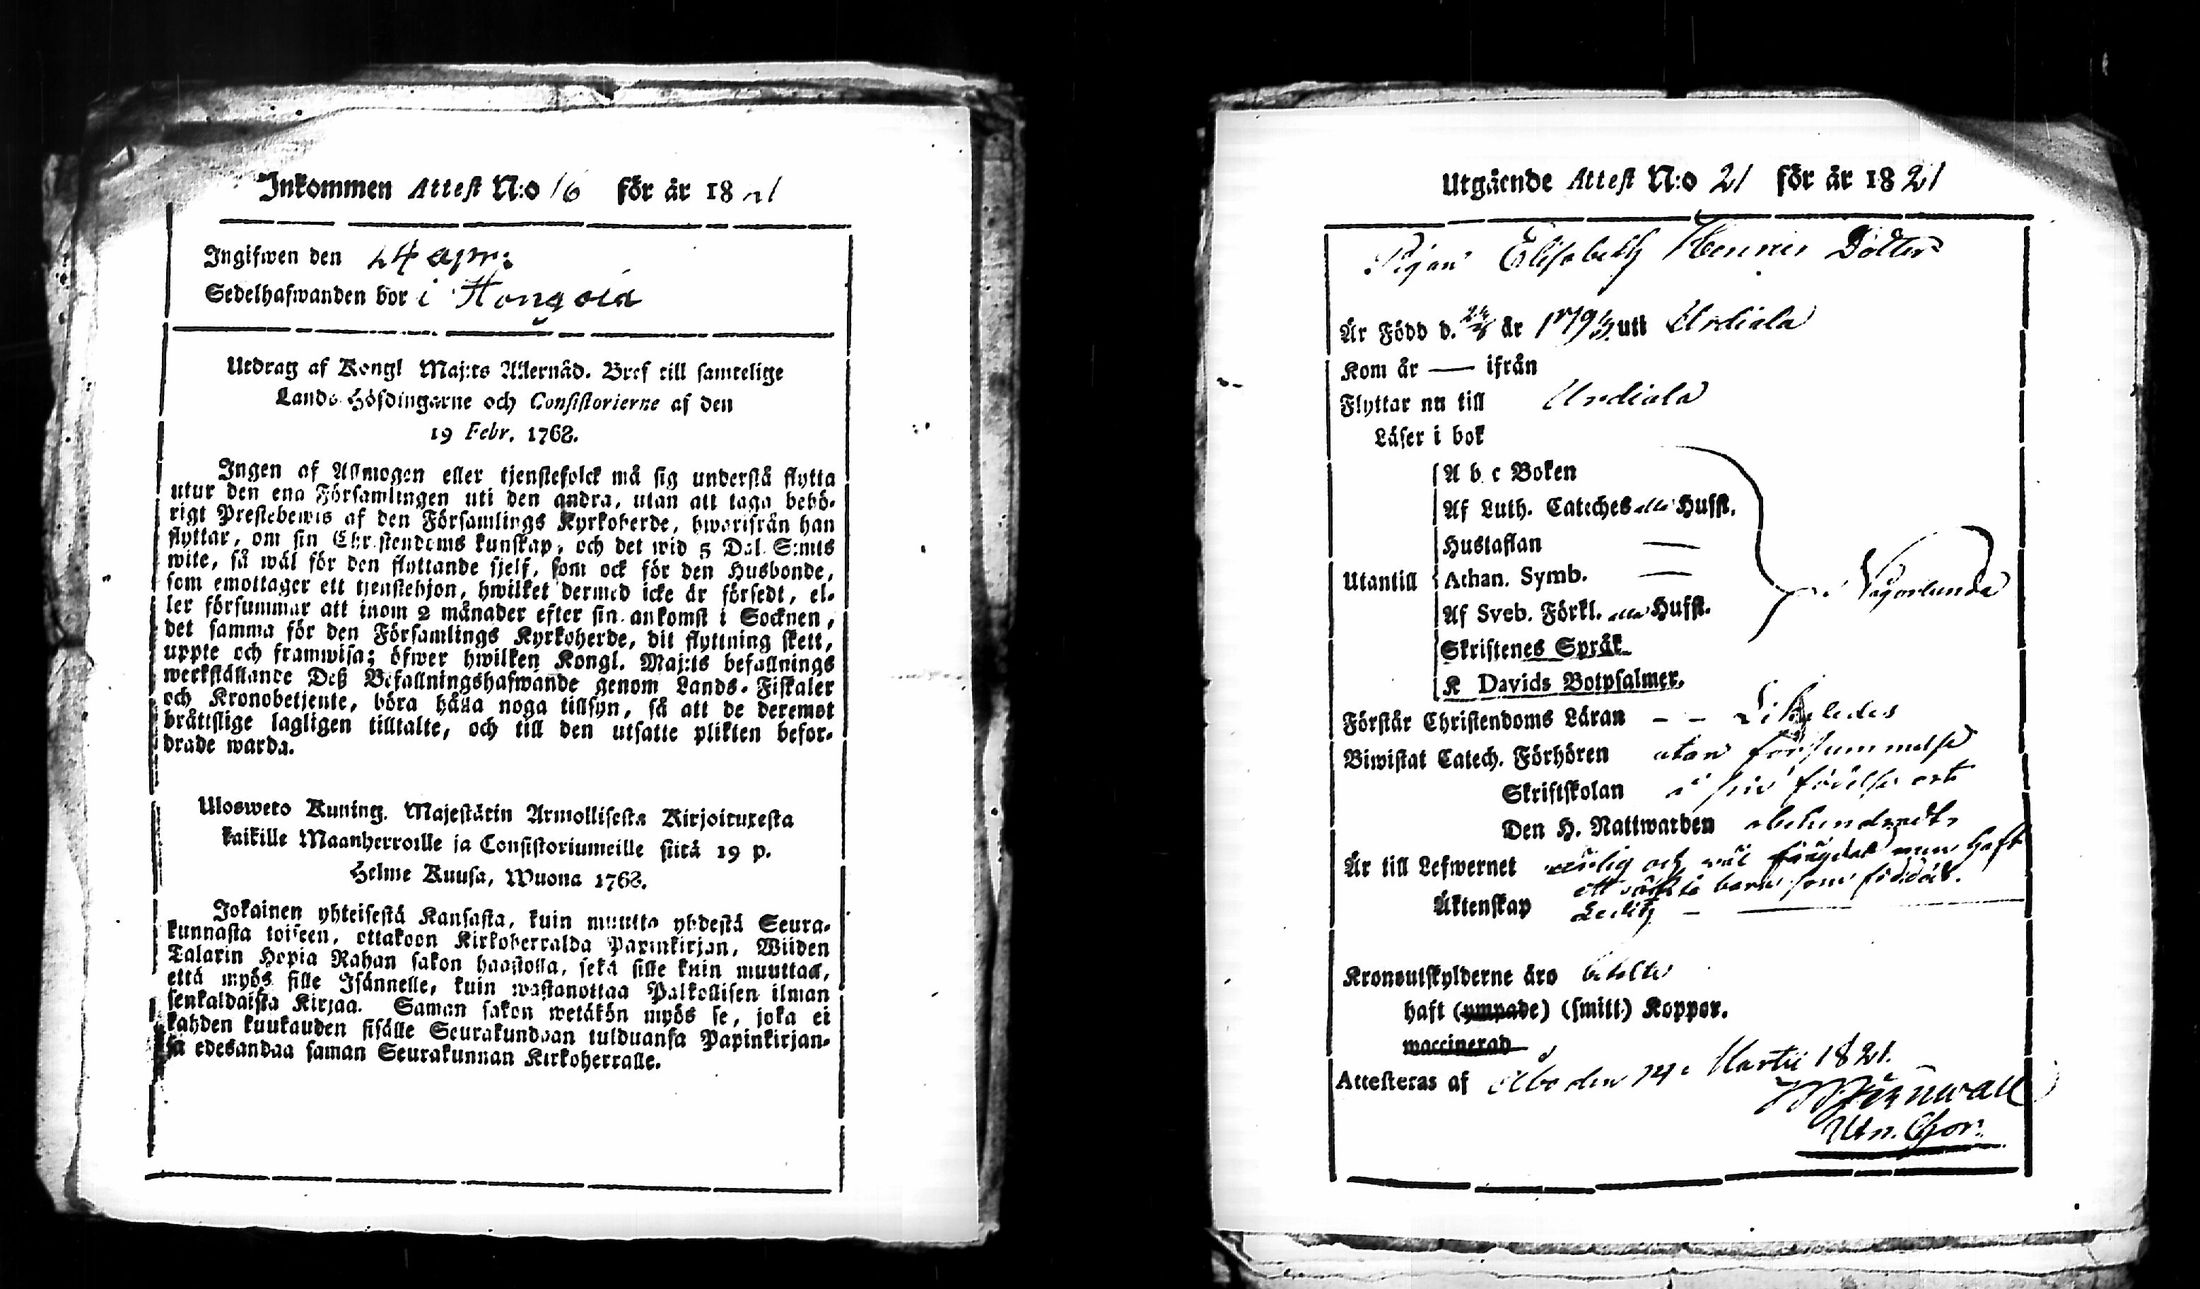 Inkommen Attest N:o 16 för år 1821
Ingifwen den 24 apr:
Sedelhafwanden bor i Hongoia
Utdrag af Kongl Maj:ts Allernåd. Bref till samtelige
Lands-Höfdingarne och Consistorierne af den
19 Febr. 1768.
Ingen af Allmogen eller tjenstefolck må sig understå flytta
utur den ena Församlingen uti den andra, utan att taga behö-
rigt Prestebewis af den Församlings Kyrkoherde, hworifrån han
flyttar, om sin Christendoms kunskap, och det wid 5 Dal. S:mts
wite, så wäl för den flyttande sjelf, som ock för den Husbonde,
som emottager ett tjenstehjon, hwilket dermed icke är försedt, el-
ler försummar att inom 2 månader efter sin ankomst i Socknen,
det samma för den Församlings Kyrkoherde, dit flyttning skett,
uppte och framwisa; öfwer hwilken Kongl. Maj:ts befallnings
werkställande Deß Befallningshafwande genom Lands-Fiskaler
och Kronobetjente, böra hålla noga tillsyn, så att de deremot
bråttslige lagligen tilltalte, och till den utsatte plikten befor-
drade warda.
Ulosweto Kuning. Majestätin Armollisesta Kirjoituxesta
kaikille Maanherroille ja Consistoriumeille siitä 19 p.
Helme Kuusa, Wuona 1768.
Jokainen yhteisestä Kansasta, kuin muutta yhdestä Seura-
kunnasta toiseen, ottakoon Kirkoherralda Papinkirjan, Wiiden
Talarin Hopia Rahan sakon haastolla, sekä sille kuin muuttaa,
että myös sille Isännelle, kuin wastanottaa Palkollisen ilman
senkaldaista Kirjaa. Saman sakon wetäkön myös se, joka ei
kahden kuukauden sisälle Seurakundaan tulduansa Papinkirjan-
sa edesandaa saman Seurakunnan Kirkoherralle.
Utgående Attest N:o 21 för år 1821
Pigan Elisabeth Henrics Dotter
Är Född d. 24/8 år 179 uti Urdiala
Kom år — ifrån
Flyttar nu till Urdiala
Läser i bok
A b c Boken
Af Luth. Cateches eller Hufst.
Hustaflan —
Utantill Athan. Symb. —
Någorlunda
Af Sveb. Förkl. eller Hufst.
Skriftenes Språk
K Davids Botpsalmer.
Förstår Christendoms Läran – – Likaledes
Biwistat Catech. Förhören utan försummelse
Skriftskolan i sin födelse ort
Den H. Nattwarden obehindradt
Är till Lefwernet ärlig och wäl men haft
ett oäkta barn som
Äktenskap Ledig —
Kronoutskylderne äro betalte
haft (ympade) (smitt) Koppor.
waccinerad
Attesteras af Åbo den 14 Martii 1821.